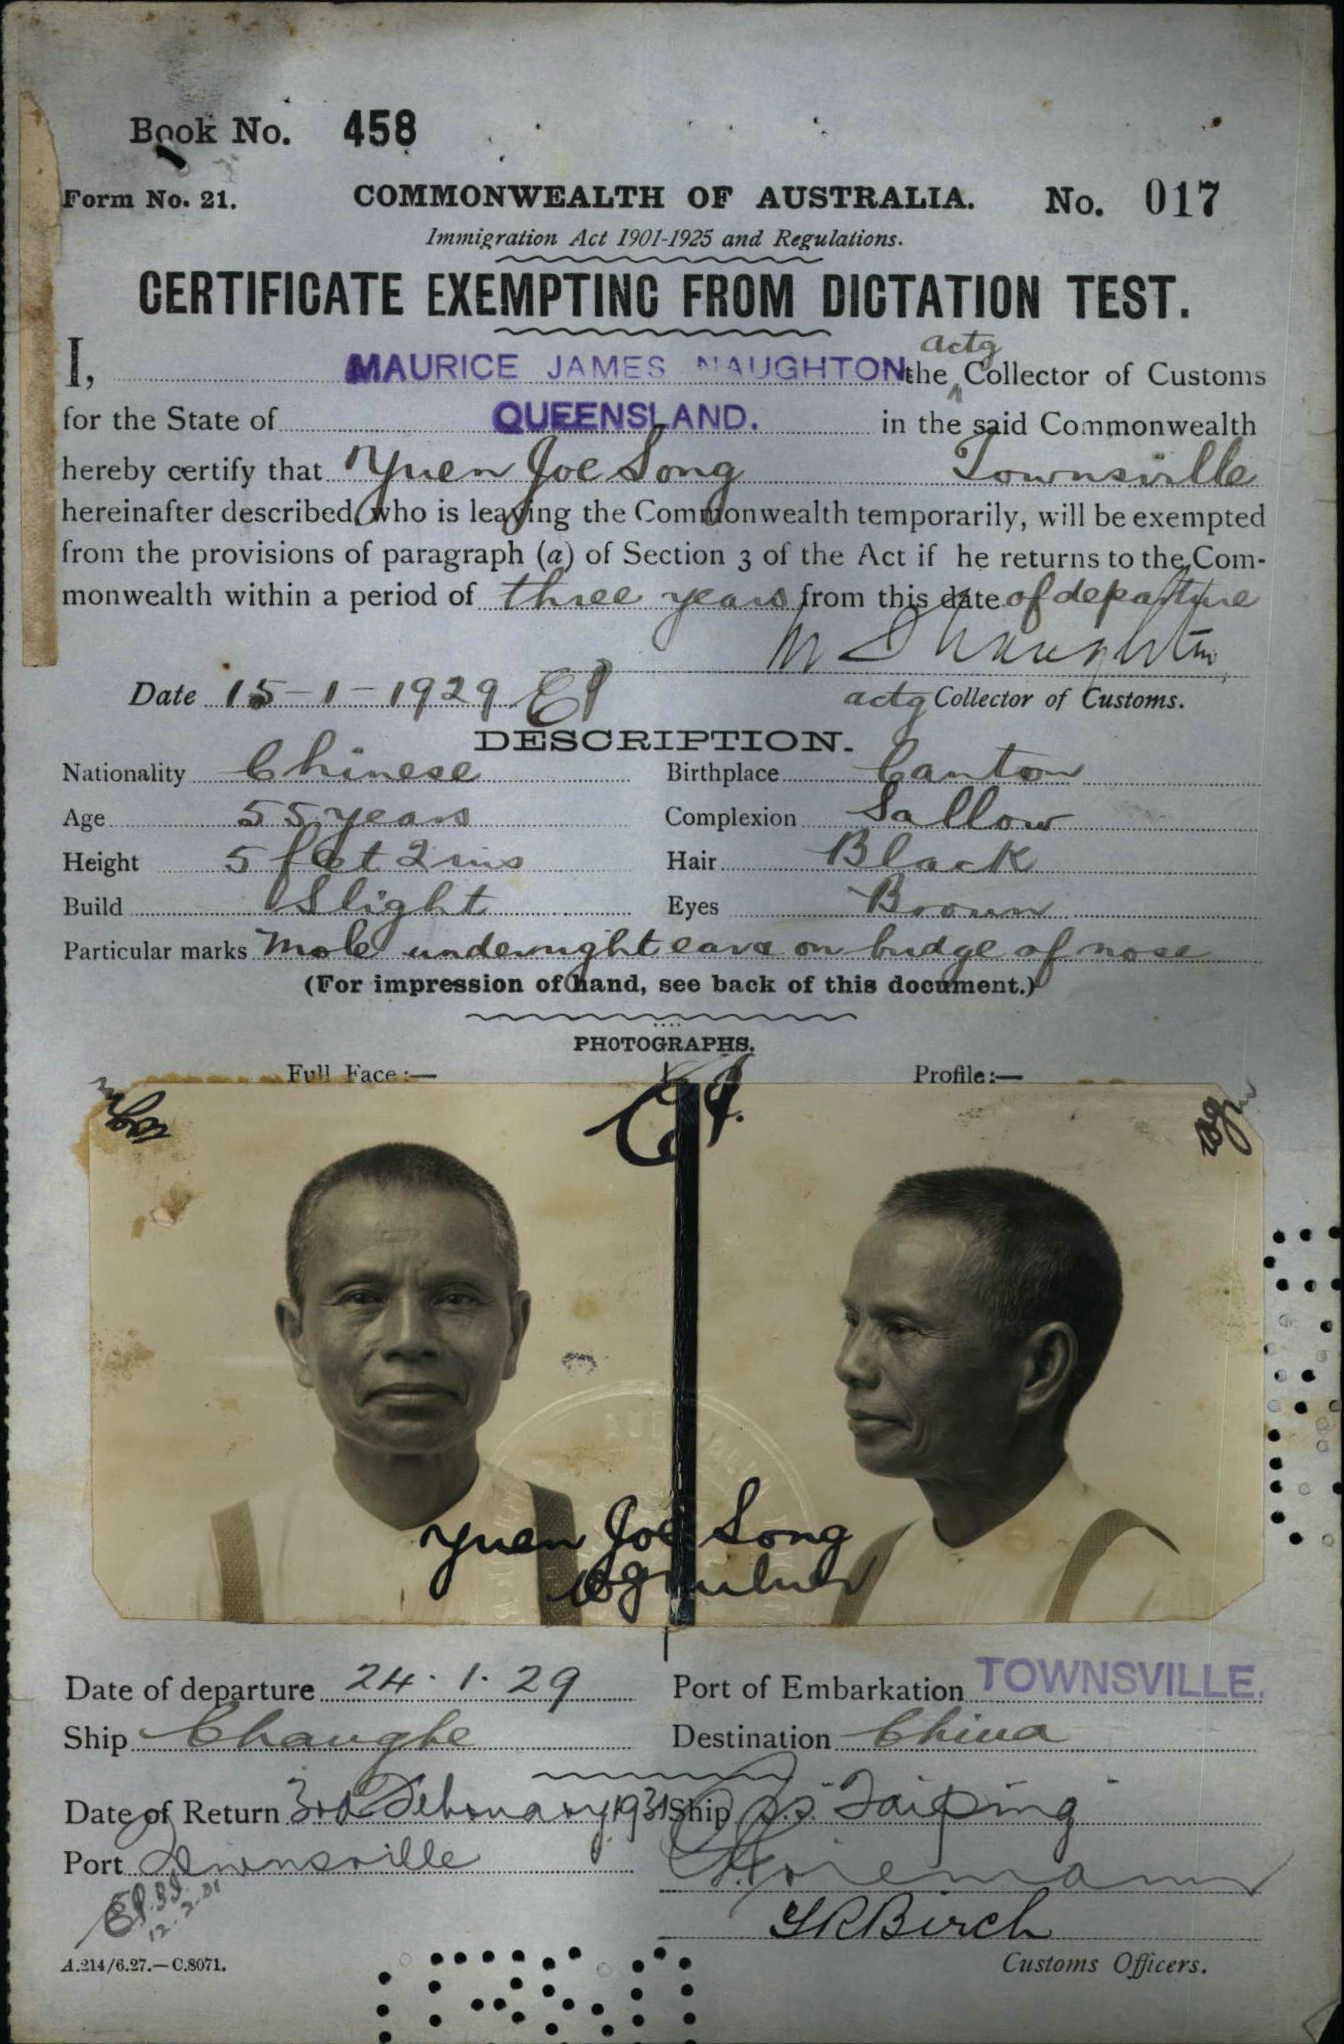 Book No. 458
Form No. 21. COMMONWEALTH OF AUSTRALIA. No. 017
Immigration Act 1901-1925 and Regulations.
CERTIFICATE EXEMPTING FROM DICTATION TEST.
I, MAURICE JAMES NAUGHTON the actg Collector of Customs
for the State of QUEENSLAND. in the said Commonwealth
hereby certify that Yuen Joe Song Townsville
hereinafter described, who is leaving the Commonwealth temporarily, will be exempted
from the provisions of paragraph (a) of Section 3 of the Act if he returns to the Com-
monwealth within a period of three years from this date of departure
Date 15-1-1929 actg Collector of Customs.
DESCRIPTION.
Nationality Chinese Birthplace Canton
Age 55 years Complexion Sallow
Height 5 feet 2 ins Hair Black
Build Slight Eyes Brown
Particular marks Mole under right ear on bridge of nose
(For impression of hand, see back of this document.)
PHOTOGRAPHS.
Full Face:— Profile:—
Yuen Joe Song
Date of departure 24.1.29 Port of Embarkation TOWNSVILLE.
Ship Changte Destination China
Date of Return 3rd February 1931 Ship S.S. Taiping
Port Townsville
12.2.31
GRBirch
A.214/6.27.—C.8071. Customs Officers.